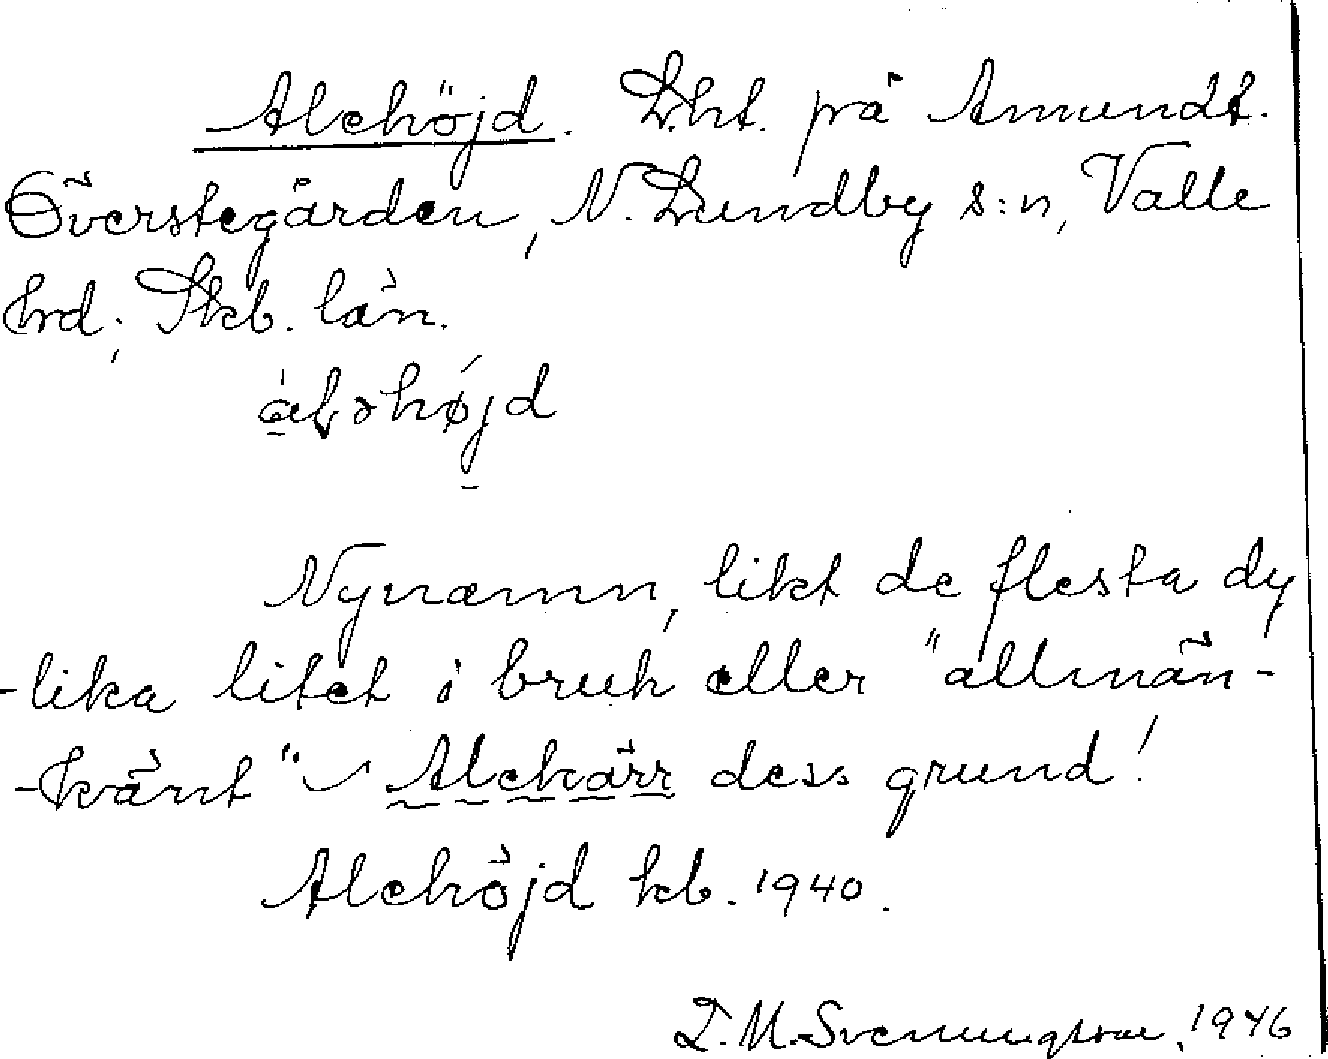 Alehöjd. Lht. på Amundt.
Överstegården, N. Lundby s:n, Valle
hrd; Skb. län.
àl̥əhǿjd
Nynamn, likt de flesta dy
-lika litet i bruk eller "allmän-
-känt" ⁓ Alekärr dess grund!
Alehöjd kb. 1940.
L. M. Svenungsson, 1946